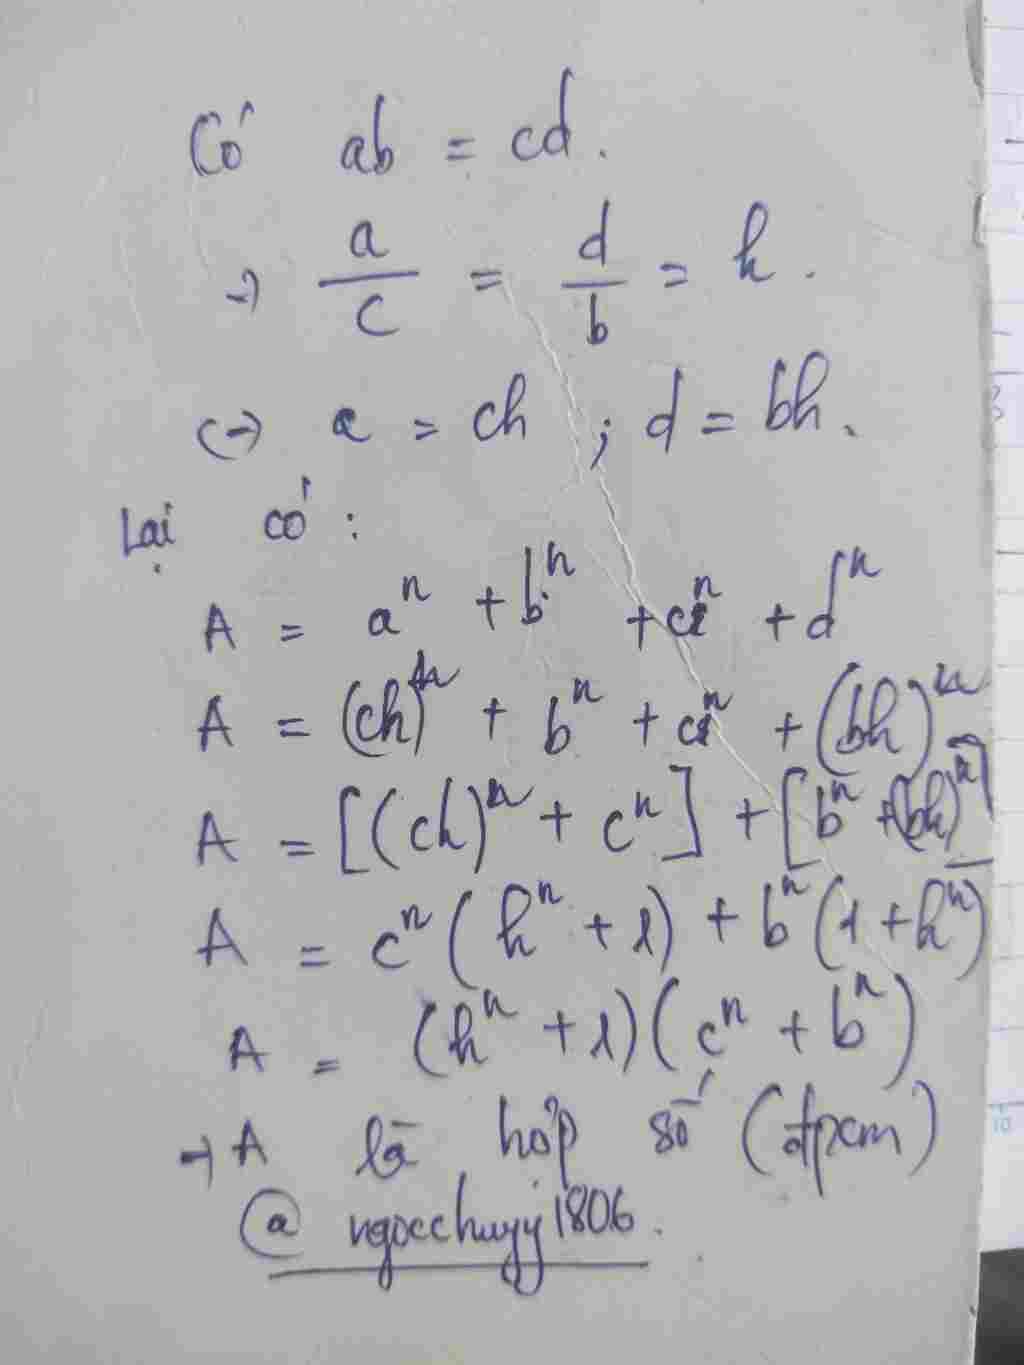 Có ab = cd.
→ a/c = d/b = h.
(→) a = ch ; d = bh.
Lại có :
A = aⁿ + bⁿ + cⁿ + dⁿ
A = (ch)ⁿ + bⁿ + cⁿ + (bh)ⁿ
A = [(ch)ⁿ + cⁿ] + [bⁿ + (bh)ⁿ]
A = cⁿ(hⁿ + 1) + bⁿ(1 + hⁿ)
A = (hⁿ + 1)(cⁿ + bⁿ)
→ A là hợp số (đpcm)
@ ngocchuyy1806.